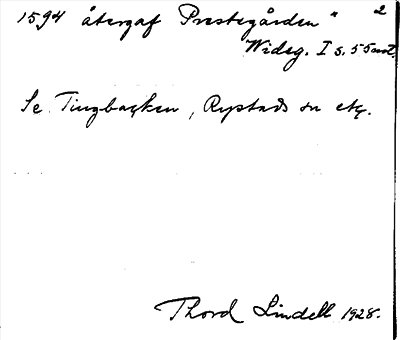 1594 återgaf Prestegården " 2
Wideg. I s. 55 not.
Se Tingbacken, Rystads sn etc.
Thord Lindell 1928.